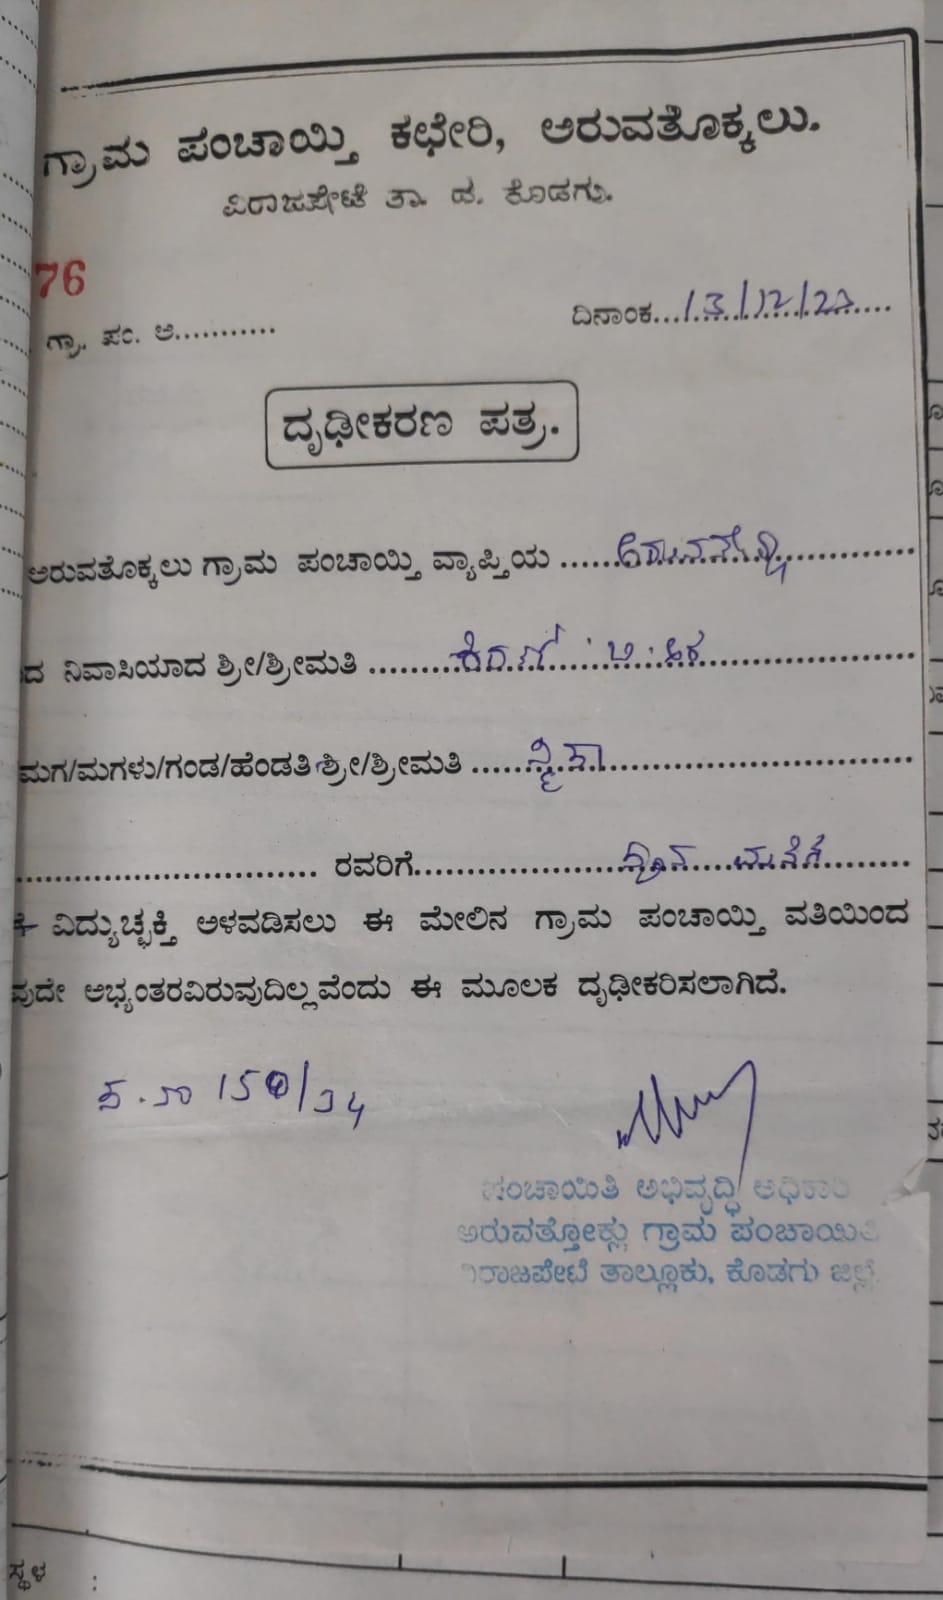 ಗ್ರಾಮ ಪಂಚಾಯ್ತಿ ಕಛೇರಿ, ಅರುವತೊಕ್ಕಲು.
ವಿರಾಜಪೇಟೆ ತಾ. ದ. ಕೊಡಗು.
76
ಗ್ರಾ. ಪಂ. ಅ...........
ದಿನಾಂಕ...13/12/23....
ದೃಢೀಕರಣ ಪತ್ರ.
ಅರುವತೊಕ್ಕಲು ಗ್ರಾಮ ಪಂಚಾಯ್ತಿ ವ್ಯಾಪ್ತಿಯ ......
ದ ನಿವಾಸಿಯಾದ ಶ್ರೀ/ಶ್ರೀಮತಿ ........ಕಿರಣ್
ಮಗ/ಮಗಳು/ಗಂಡ/ಹೆಂಡತಿ ಶ್ರೀ/ಶ್ರೀಮತಿ ......
.............................. ರವರಿಗೆ.................... ಮನೆಗೆ........
ವಿದ್ಯುಚ್ಛಕ್ತಿ ಅಳವಡಿಸಲು ಈ ಮೇಲಿನ ಗ್ರಾಮ ಪಂಚಾಯ್ತಿ ವತಿಯಿಂದ
ವುದೇ ಅಭ್ಯಂತರವಿರುವುದಿಲ್ಲವೆಂದು ಈ ಮೂಲಕ ದೃಢೀಕರಿಸಲಾಗಿದೆ.
ಪಂಚಾಯಿತಿ ಅಭಿವೃದ್ಧಿ ಅಧಿಕಾರಿ
ಅರುವತ್ತೋಕ್ಲು ಗ್ರಾಮ ಪಂಚಾಯಿತಿ
ವಿರಾಜಪೇಟೆ ತಾಲ್ಲೂಕು, ಕೊಡಗು ಜಿಲ್ಲೆ
ಸ್ಥಳ :